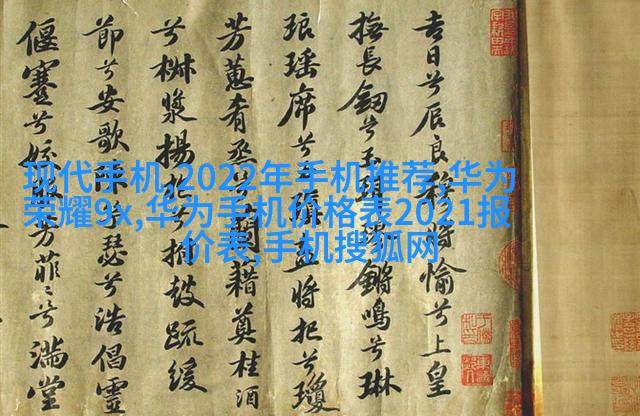 现代手机,2022年手机推荐,华为
荣耀9x,华为手机价格表2021报
价表,手机搜狐网
吉日兮辰良穆將愉兮上皇
撫長劒兮玉珥璆鏘鳴兮琳
琅瑤席兮瑱盍將把兮瓊
芳蕙肴烝蘭藉奠桂酒
兮椒漿揚枹兮拊鼓疏緩
節兮安歌瑟兮浩倡靈
偃蹇兮姣芳菲〻兮滿堂